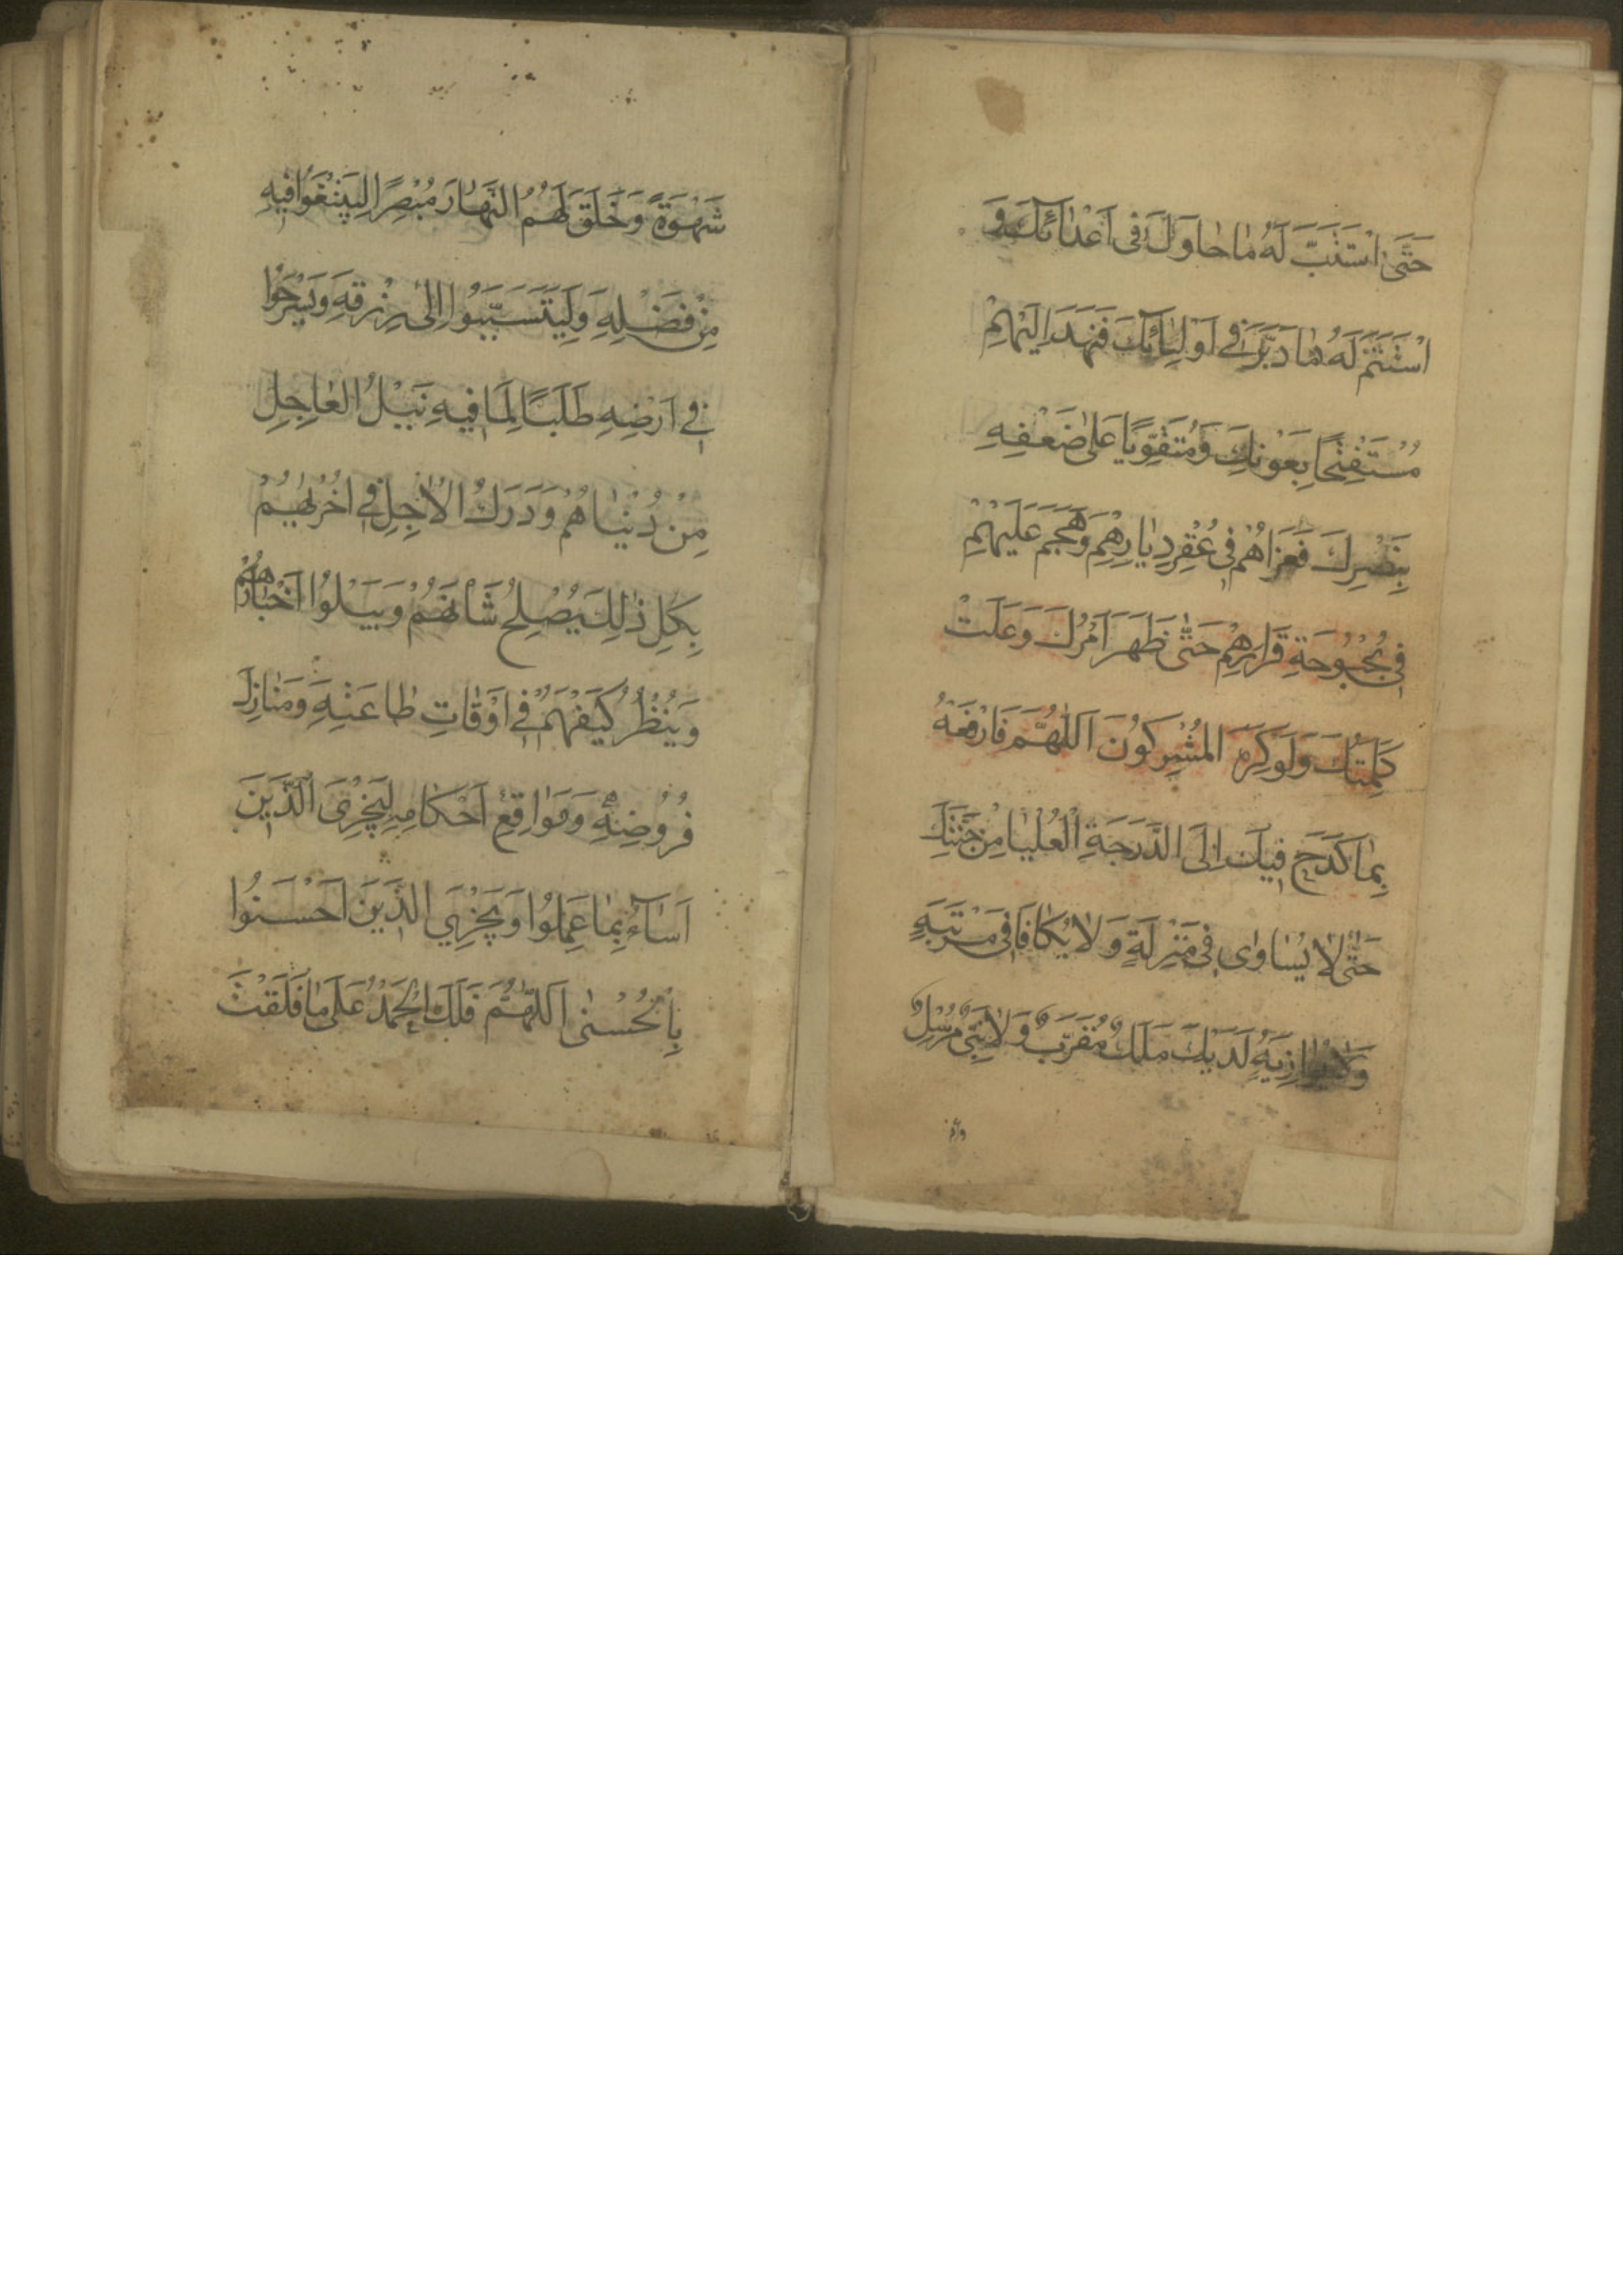 حَتَّى اسْتَتَبَّ لَهُ مَا حَاوَلَ فِى اَعْدَائِكَ وَ
اسْتَتَمَّ لَهُ مَا دَبَّرَ فِى اَوْلِيَائِكَ فَنَهَدَ اِلَيْهِمْ
مُسْتَفْتِحًا بِعَوْنِكَ وَمُتَقَوِّيًا عَلَى ضَعْفِهِ
بِنَصْرِكَ فَغَزَاهُمْ فِى عُقْرِ دِيَارِهِمْ وَهَجَمَ عَلَيْهِمْ
فِى بُحْبُوحَةِ قَرَارِهِمْ حَتَّى ظَهَرَ اَمْرُكَ وَعَلَتْ
كَلِمَتُكَ وَلَوْ كَرِهَ المُشْرِكُونَ اَللّٰهُمَّ فَارْفَعْهُ
بِمَا كَدَحَ فِيكَ اِلَى الدَّرَجَةِ الْعُلْيَا مِنْ جَنَّتِكَ
حَتَّى لَا يُسَاوَى فِى مَنْزِلَةٍ وَلَا يُكَافَا فِى مَرْتَبَةٍ
وَلَا يُوَازِيَهُ لَدَيْكَ مَلَكٌ مُقَرَّبٌ وَلَا نَبِىٌّ مُرْسَلٌ
شَهْوَةً وَخَلَقَ لَهُمُ النَّهَارَ مُبْصِرًا لِيَبْتَغُوا فِيهِ
مِنْ فَضْلِهِ وَلِيَتَسَبَّبُوا اِلَى رِزْقِهِ وَيَسْرَحُوا
فِى اَرْضِهِ طَلَبًا لِمَا فِيهِ نَيْلُ العَاجِلِ
مِنْ دُنْيَاهُمْ وَدَرَكُ الْاٰجِلِ فِى اُخْرٰيهُمْ
بِكُلِّ ذٰلِكَ يُصْلِحُ شَأْنَهُمْ وَيَبْلُوا اَخْبَارَهُمْ
وَيَنْظُرُ كَيْفَ هُمْ فِى اَوْقَاتِ طَاعَتِهِ وَمَنَازِلِ
فُرُوضِهِ وَمَوَاقِعِ اَحْكَامِهِ لِيَجْزِىَ الَّذِينَ
اَسَاءُ بِمَا عَمِلُوا وَيَجْزِيَ الَّذِينَ اَحْسَنُوا
بِالْحُسْنٰى اَللّٰهُمَّ فَلَكَ الْحَمْدُ عَلَى مَا فَلَقْتَ